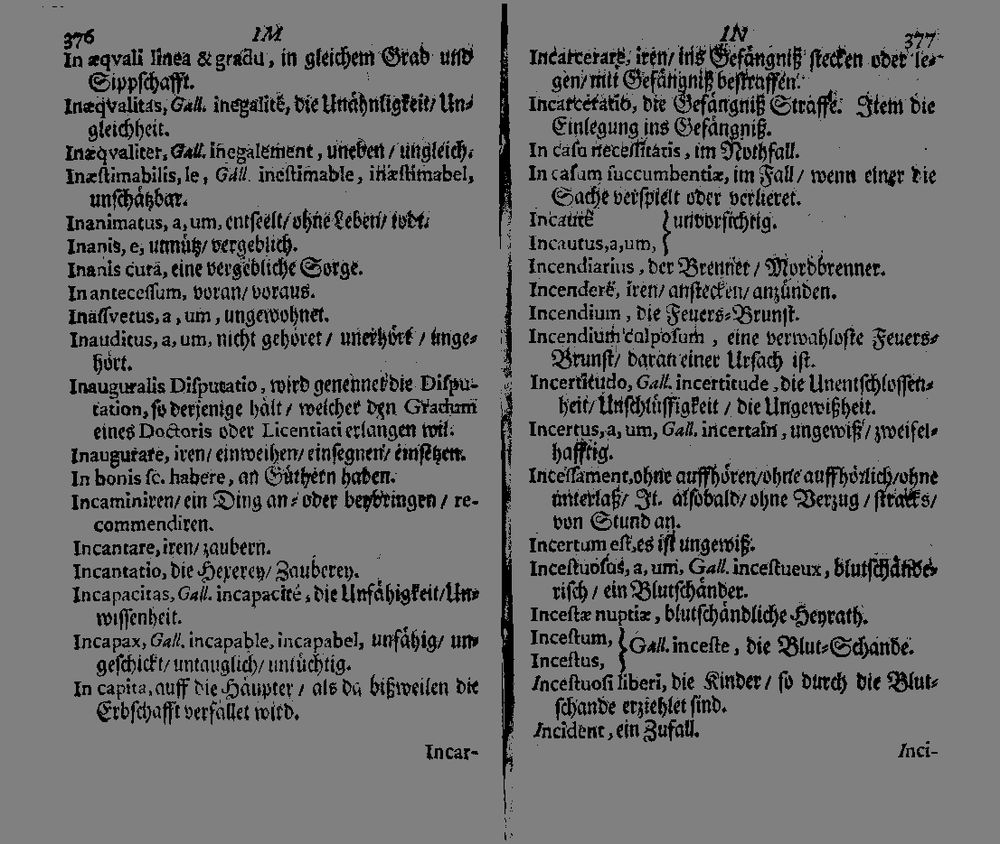 376 IM
In æqvali linea & gradu, in gleichem Grad und
Sippschafft.
Inæqvalitas, Gall. inegalité, die Unähnligkeit/ Un-
gleichheit.
Inæqvaliter, Gall. inegalement, uneben/ ungleich.
Inæstimabilis, le, Gall. inestimable, inæstimabel,
unschätzbar.
Inanimatus, a, um, entseelt/ ohne Leben/ todt.
Inanis, e, unnütz/ vergeblich.
Inanis cura, eine vergebliche Sorge.
In antecessum, voran/ voraus.
Inassvetus, a, um, ungewohnet.
Inauditus, a, um, nicht gehöret/ unerhört/ unge-
hört.
Inauguralis Disputatio, wird genennet die Dispu-
tation, so derjenige hält/ welcher den Gradum
eines Doctoris oder Licentiati erlangen wil.
Inaugurare, iren/ einweihen/ einsegnen/ einsetzen.
In bonis sc. habere, an Güthern haben.
Incaminiren/ ein Ding an- oder beybringen/ re-
commendiren.
Incantare, iren/ zaubern.
Incantatio, die Hexerey/ Zauberey.
Incapacitas, Gall. incapacité, die Unfähigkeit/ Un-
wissenheit.
Incapax, Gall. incapable, incapabel, unfähig/ un-
geschickt/ untauglich/ untüchtig.
In capita, auff die Häupter/ als da bißweilen die
Erbschafft verfället wird.
Incar-
IN 377
Incarcerare, iren/ ins Gefängniß stecken oder le-
gen/ mit Gefängniß bestraffen.
Incarceratio, die Gefängniß Straffe. Item die
Einlegung ins Gefängniß.
In casu necessitatis, im Nothfall.
In casum succumbentiæ, im Fall/ wenn einer die
Sache verspielt oder verlieret.
Incautè } unvorsichtig.
Incautus, a, um,
Incendiarius, der Brenner/ Mordbrenner.
Incendere, iren/ anstecken/ anzünden.
Incendium, die Feuers-Brunst.
Incendium culposum, eine verwahloste Feuers-
Brunst/ daran einer Ursach ist.
Incertitudo, Gall. incertitude, die Unentschlossen-
heit/ Unschlüssigkeit/ die Ungewißheit.
Incertus, a, um, Gall. incertain, ungewiß/ zweifel-
hafftig.
Incessament, ohne auffhören/ ohne auffhörlich/ ohne
unterlaß/ It. alsobald/ ohne Verzug/ stracks/
von Stund an.
Incertum est, es ist ungewiß.
Incestuosus, a, um, Gall. incestueux, blutschände-
risch/ ein Blutschänder.
Incestæ nuptiæ, blutschändliche Heyrath.
Incestum, } Gall. inceste, die Blut-Schande.
Incestus,
Incestuosi liberi, die Kinder/ so durch die Blut-
schande erziehlet sind.
Incident, ein Zufall.
Inci-